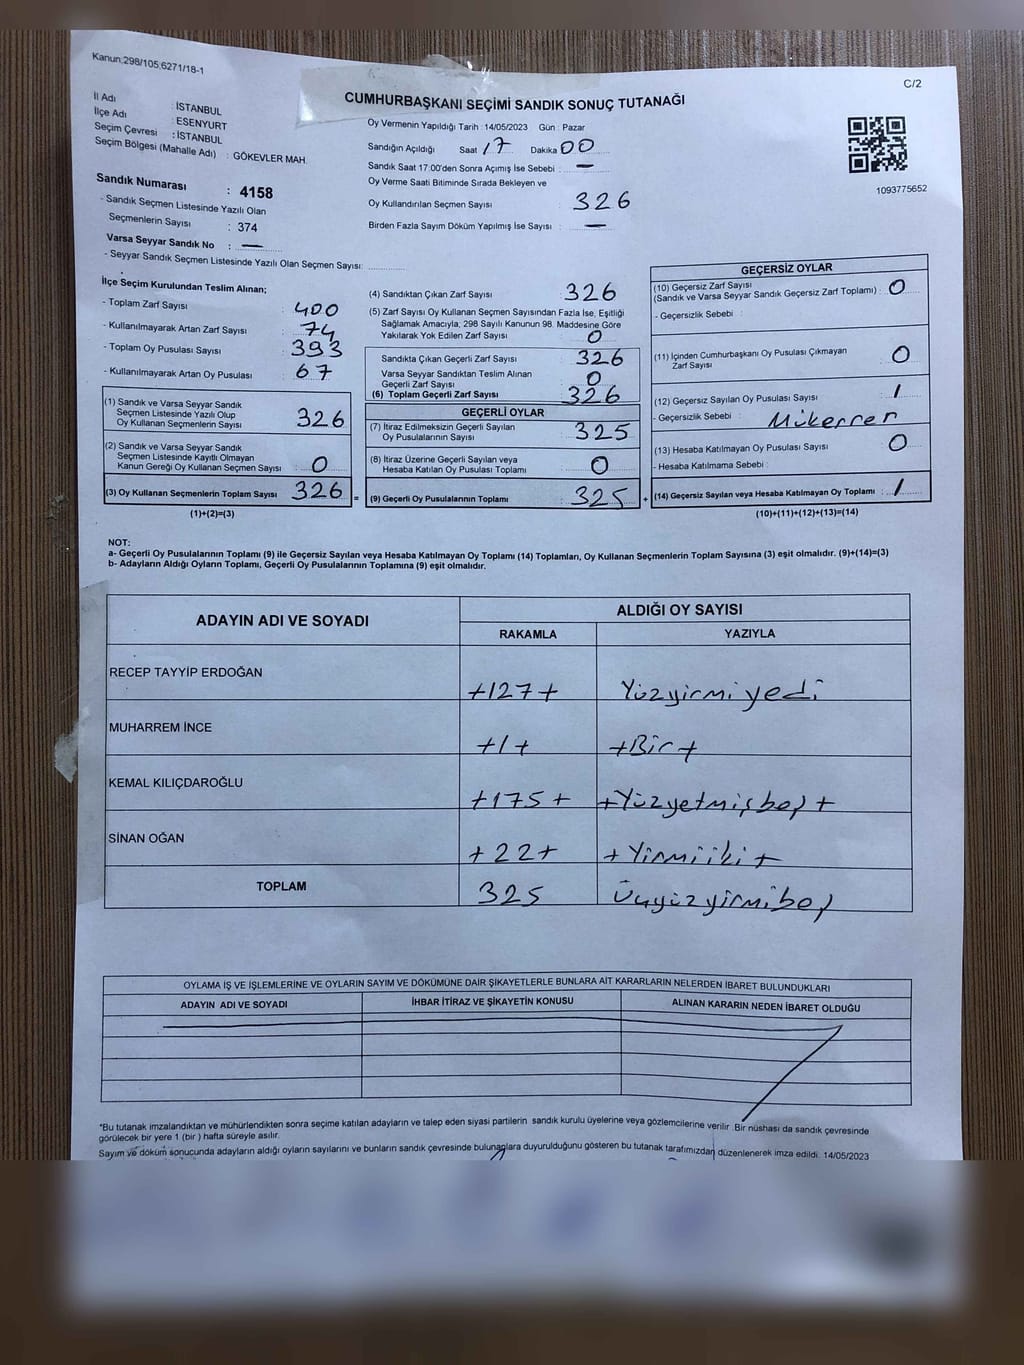 Kanun;298/105,6271/18-1
C/2
CUMHURBAŞKANI SEÇİMİ SANDIK SONUÇ TUTANAĞI
İl Adı : İSTANBUL
İlçe Adı : ESENYURT
Seçim Çevresi : İSTANBUL
Seçim Bölgesi (Mahalle Adı) : GÖKEVLER MAH.
Oy Vermenin Yapıldığı Tarih :14/05/2023 Gün : Pazar
Sandığın Açıldığı Saat 17 Dakika 00
Sandık Saat 17:00'den Sonra Açımış İse Sebebi : —
Oy Verme Saati Bitiminde Sırada Bekleyen ve
Oy Kullandırılan Seçmen Sayısı : 326
Birden Fazla Sayım Döküm Yapılmış İse Sayısı : —
1093775652
Sandık Numarası : 4158
- Sandık Seçmen Listesinde Yazılı Olan
Seçmenlerin Sayısı : 374
Varsa Seyyar Sandık No : —
- Seyyar Sandık Seçmen Listesinde Yazılı Olan Seçmen Sayısı:
İlçe Seçim Kurulundan Teslim Alınan;
- Toplam Zarf Sayısı : 400
- Kullanılmayarak Artan Zarf Sayısı : 74
- Toplam Oy Pusulası Sayısı : 393
- Kullanılmayarak Artan Oy Pusulası : 67
(1) Sandık ve Varsa Seyyar Sandık
Seçmen Listesinde Yazılı Olup
Oy Kullanan Seçmenlerin Sayısı : 326
(2) Sandık ve Varsa Seyyar Sandık
Seçmen Listesinde Kayıtlı Olmayan
Kanun Gereği Oy Kullanan Seçmen Sayısı : 0
(3) Oy Kullanan Seçmenlerin Toplam Sayısı : 326 =
(1)+(2)=(3)
(4) Sandıktan Çıkan Zarf Sayısı : 326
(5) Zarf Sayısı Oy Kullanan Seçmen Sayısından Fazla İse, Eşitliği
Sağlamak Amacıyla, 298 Sayılı Kanunun 98. Maddesine Göre
Yakılarak Yok Edilen Zarf Sayısı : 0
Sandıkta Çıkan Geçerli Zarf Sayısı : 326
Varsa Seyyar Sandıktan Teslim Alınan
Geçerli Zarf Sayısı : 0
(6) Toplam Geçerli Zarf Sayısı : 326
GEÇERLİ OYLAR
(7) İtiraz Edilmeksizin Geçerli Sayılan
Oy Pusulalarının Sayısı : 325
(8) İtiraz Üzerine Geçerli Sayılan veya
Hesaba Katılan Oy Pusulası Toplamı : 0
(9) Geçerli Oy Pusulalarının Toplamı : 325 +
GEÇERSİZ OYLAR
(10) Geçersiz Zarf Sayısı
(Sandık ve Varsa Seyyar Sandık Geçersiz Zarf Toplamı) : 0
- Geçersizlik Sebebi :
(11) İçinden Cumhurbaşkanı Oy Pusulası Çıkmayan
Zarf Sayısı : 0
(12) Geçersiz Sayılan Oy Pusulası Sayısı : 1
- Geçersizlik Sebebi : Mükerrer
(13) Hesaba Katılmayan Oy Pusulası Sayısı : 0
- Hesaba Katılmama Sebebi :
(14) Geçersiz Sayılan veya Hesaba Katılmayan Oy Toplamı : 1
(10)+(11)+(12)+(13)=(14)
NOT:
a- Geçerli Oy Pusulalarının Toplamı (9) ile Geçersiz Sayılan veya Hesaba Katılmayan Oy Toplamı (14) Toplamları, Oy Kullanan Seçmenlerin Toplam Sayısına (3) eşit olmalıdır. (9)+(14)=(3)
b- Adayların Aldığı Oyların Toplamı, Geçerli Oy Pusulalarının Toplamına (9) eşit olmalıdır.
ADAYIN ADI VE SOYADI ALDIĞI OY SAYISI
RAKAMLA YAZIYLA
RECEP TAYYİP ERDOĞAN +127+ Yüzyirmiyedi
MUHARREM İNCE +1+ +Bir+
KEMAL KILIÇDAROĞLU +175+ +Yüzyetmişbeş+
SİNAN OĞAN +22+ +Yirmiiki+
TOPLAM 325 Üçyüzyirmibeş
OYLAMA İŞ VE İŞLEMLERİNE VE OYLARIN SAYIM VE DÖKÜMÜNE DAİR ŞİKAYETLERLE BUNLARA AİT KARARLARIN NELERDEN İBARET BULUNDUKLARI
ADAYIN ADI VE SOYADI İHBAR İTİRAZ VE ŞİKAYETİN KONUSU ALINAN KARARIN NEDEN İBARET OLDUĞU
*Bu tutanak imzalandıktan ve mühürlendikten sonra seçime katılan adayların ve talep eden siyasi partilerin sandık kurulu üyelerine veya gözlemcilerine verilir .Bir nüshası da sandık çevresinde
görülecek bir yere 1 (bir ) hafta süreyle asılır.
Sayım ve döküm sonucunda adayların aldığı oyların sayılarını ve bunların sandık çevresinde bulunanlara duyurulduğunu gösteren bu tutanak tarafımızdan düzenlenerek imza edildi. 14/05/2023